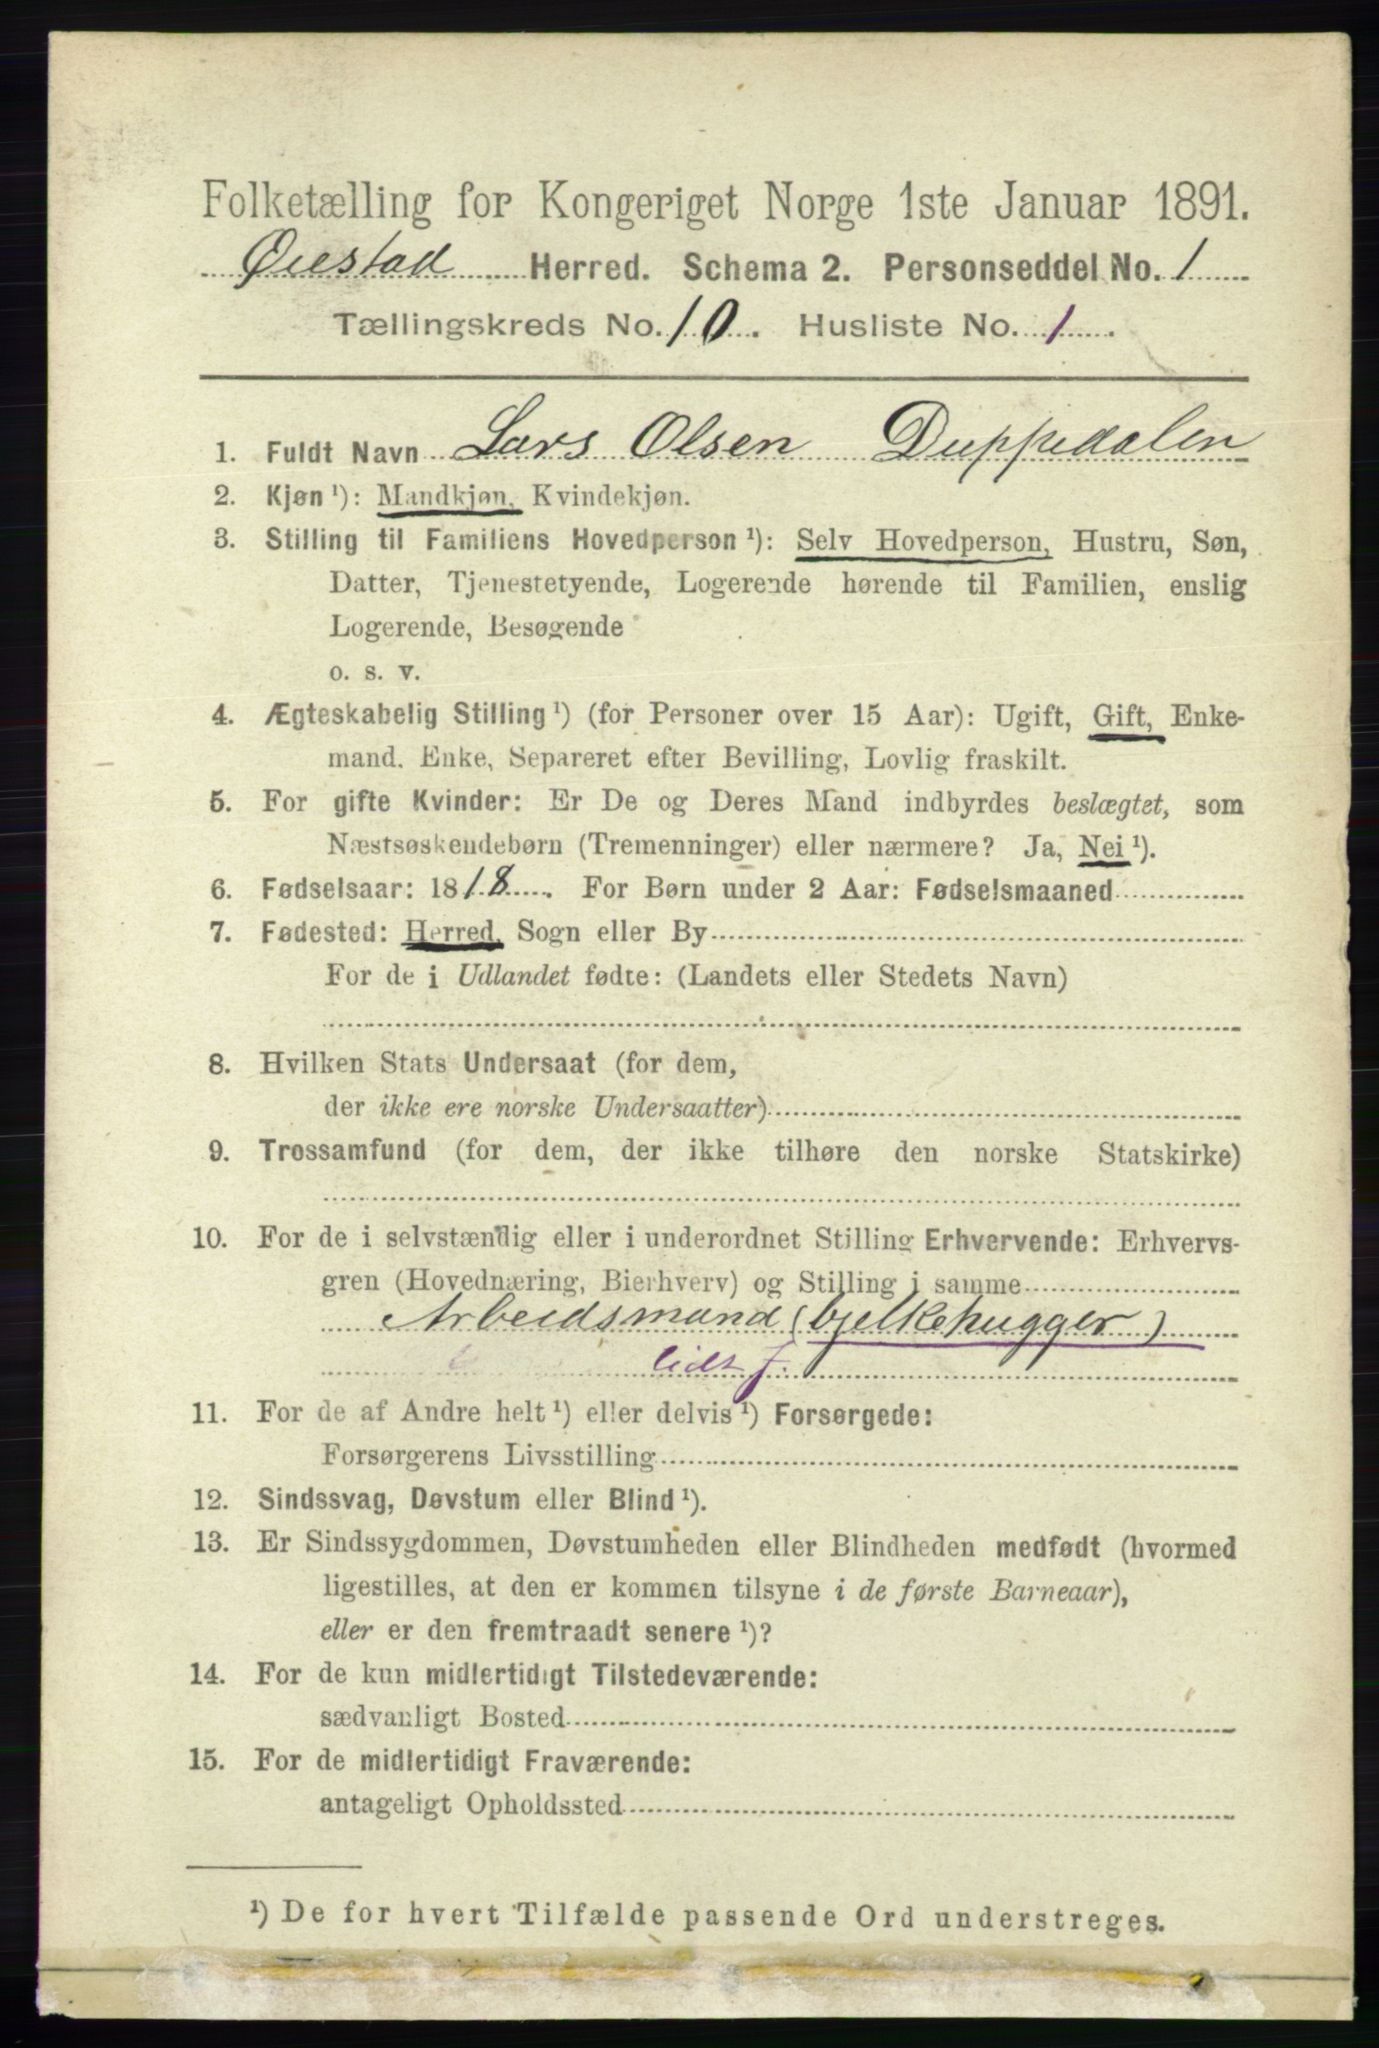 Folketælling for Kongeriget Norge 1ste Januar 1891.
Øiestad Herred. Schema 2. Personseddel No. 1
Tællingskreds No. 10. Husliste No. 1.
1. Fuldt Navn Lars Olsen Duppedalen
2. Kjøn ¹): Mandkjøn, Kvindekjøn.
3. Stilling til Familiens Hovedperson ¹): Selv Hovedperson, Hustru, Søn,
Datter, Tjenestetyende, Logerende hørende til Familien, enslig
Logerende, Besøgende
o. s. v.
4. Ægteskabelig Stilling ¹) (for Personer over 15 Aar): Ugift, Gift, Enke-
mand, Enke, Separeret efter Bevilling, Lovlig fraskilt.
5. For gifte Kvinder: Er De og Deres Mand indbyrdes beslægtet, som
Næstsøskendebørn (Tremenninger) eller nærmere? Ja, Nei ¹).
6. Fødselsaar: 1818. For Børn under 2 Aar: Fødselsmaaned
7. Fødested: Herred, Sogn eller By
For de i Udlandet fødte: (Landets eller Stedets Navn)
8. Hvilken Stats Undersaat (for dem,
der ikke ere norske Undersaatter)
9. Trossamfund (for dem, der ikke tilhøre den norske Statskirke)
10. For de i selvstændig eller i underordnet Stilling Erhvervende: Erhvervs-
gren (Hovednæring, Bierhverv) og Stilling i samme
Arbeidsmand (bjelkehugger)
lidt j.
11. For de af Andre helt ¹) eller delvis ¹) Forsørgede:
Forsørgerens Livsstilling
12. Sindssvag, Døvstum eller Blind ¹).
13. Er Sindssygdommen, Døvstumheden eller Blindheden medfødt (hvormed
ligestilles, at den er kommen tilsyne i de første Barneaar),
eller er den fremtraadt senere ¹)?
14. For de kun midlertidigt Tilstedeværende:
sædvanligt Bosted
15. For de midlertidigt Fraværende:
antageligt Opholdssted
¹) De for hvert Tilfælde passende Ord understreges.